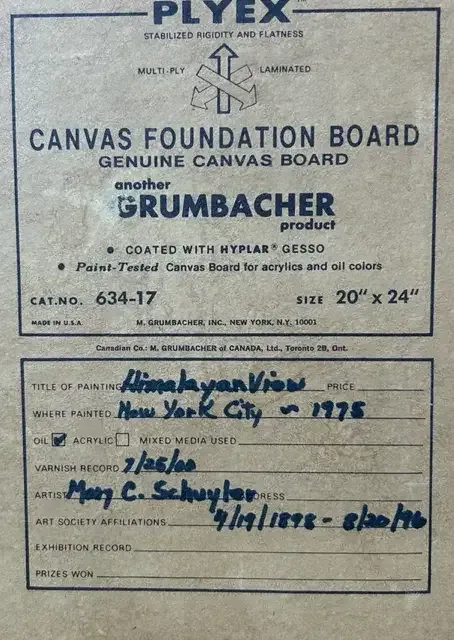 PLYEX™
STABILIZED RIGIDITY AND FLATNESS
MULTI-PLY LAMINATED
CANVAS FOUNDATION BOARD
GENUINE CANVAS BOARD
another
GRUMBACHER
product
• COATED WITH HYPLAR® GESSO
• Paint-Tested Canvas Board for acrylics and oil colors
CAT.NO. 634-17 SIZE 20" x 24"
MADE IN U.S.A. M. GRUMBACHER, INC., NEW YORK, N.Y. 10001
Canadian Co.: M. GRUMBACHER of CANADA, Ltd., Toronto 2B, Ont.
TITLE OF PAINTING Himalayan View PRICE
WHERE PAINTED New York City ~ 1975
OIL ☑ ACRYLIC ☐ MIXED MEDIA USED
VARNISH RECORD 7/25/00
ARTIST Mary C. Schuyler DRESS
ART SOCIETY AFFILIATIONS 9/19/1898 - 8/20/96
EXHIBITION RECORD
PRIZES WON